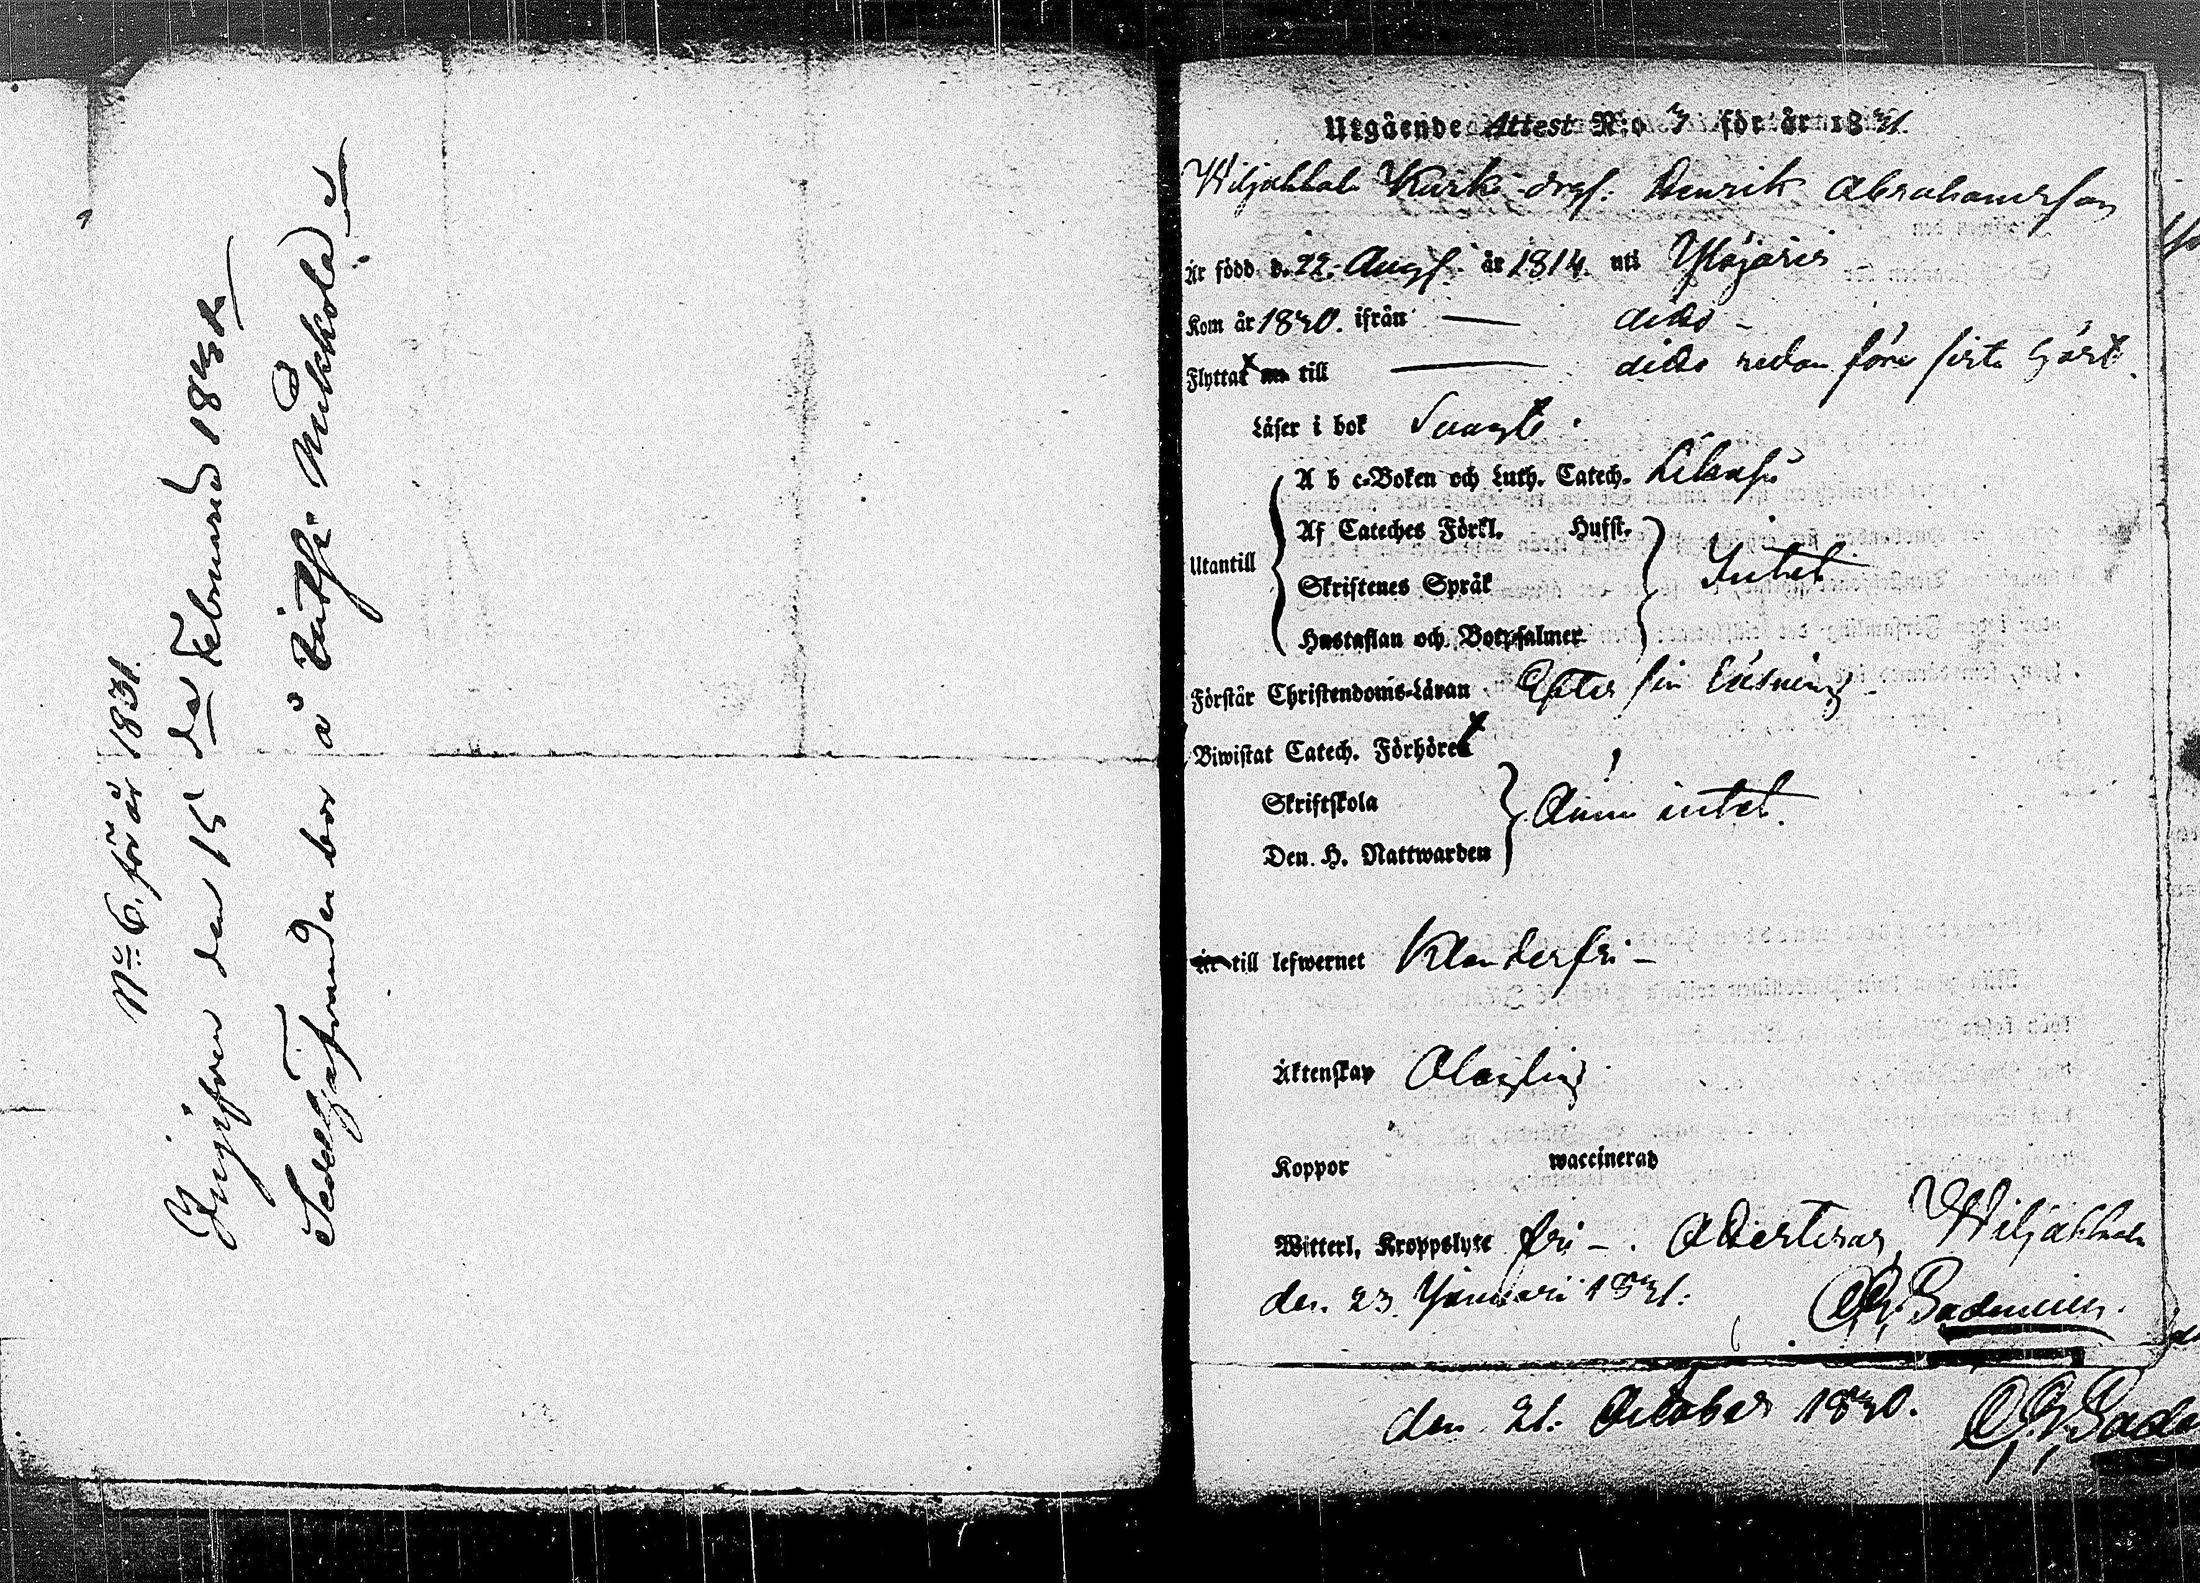 No 6. för år 1831.
Ingifven den 15 de Februarii 1831
Sedelgifvanden bor å Mikkola
Utgående Attest N:o 3 för år 1831.
Wiljakkala Kurki drgs. Henrik Abrahamsson
Är född d. 22. Aug. år 1814. uti Ylöjärvi
Kom år 1830. ifrån — dito —
Flyttat till — dito redan före sista höst.
Läser i bok Svagt.
A b c-Boken och Luth. Catech. Likaså
Af Cateches Förkl. Hufst.
Utantill
Skriftenes Språk
Intet
Hustaflan och Botpsalmer
Förstår Christendoms-Läran Efter sin läsning.
Biwistat Catech. Förhören
Skriftskola
Ännu intet.
Den H. Nattwarden
Är till lefwernet Klanderfri —
Äktenskap Olaglig
Koppor waccinerad
Witterl. Kroppslyte fri — . Adterterar, Wiljakkala
den 23 Januari 1831.
den 21. October 1830.